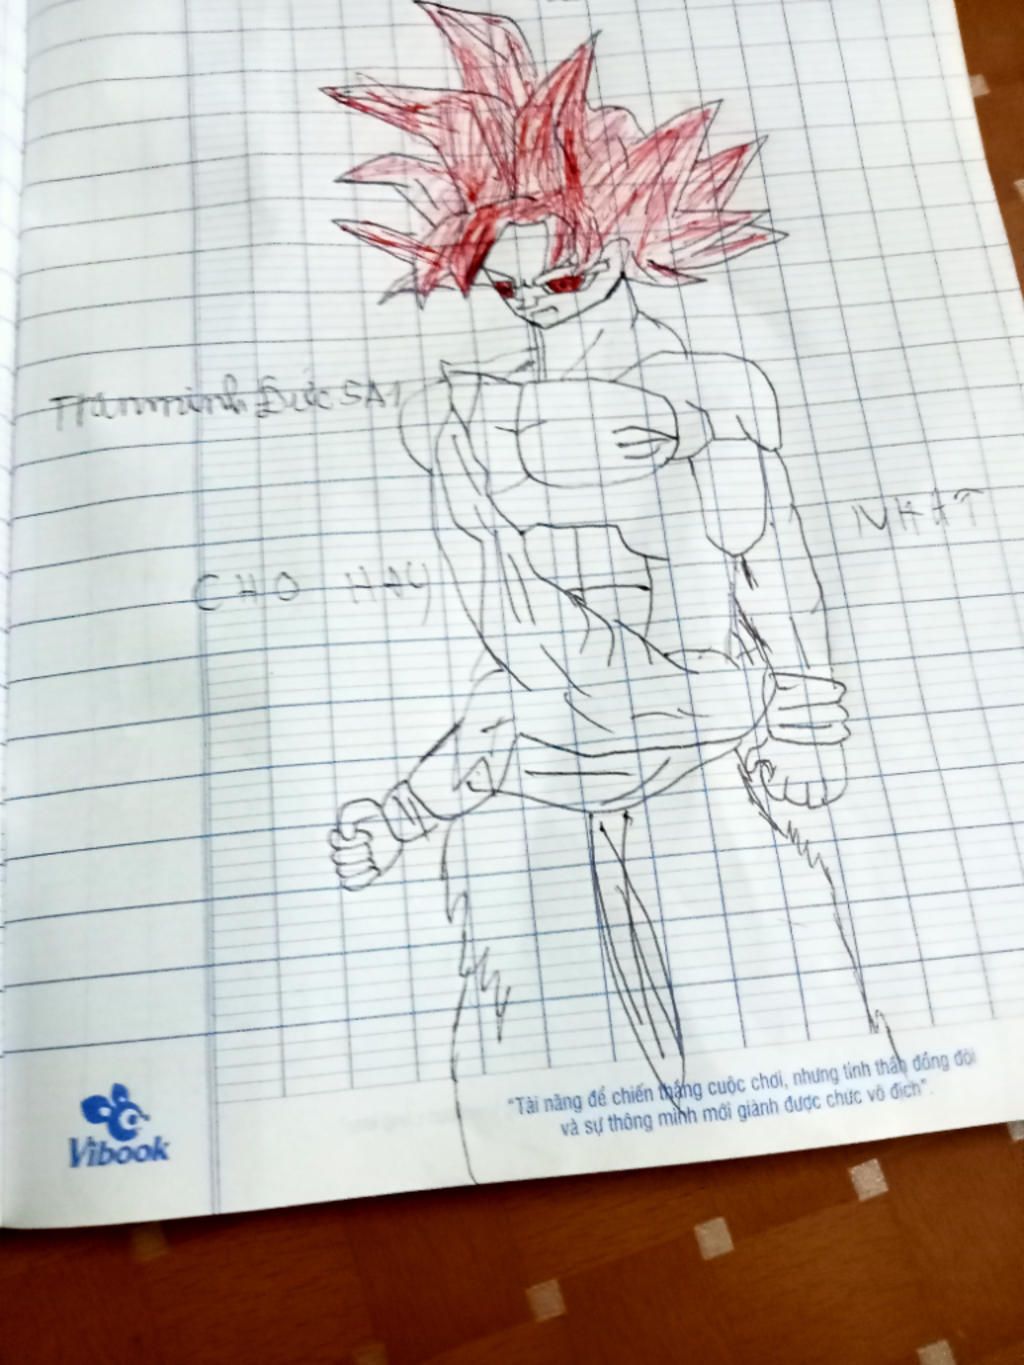 Đức 5A1
NHẤT
CHO HAY
"Tài năng để chiến thắng cuộc chơi, nhưng tinh thần đồng đội
và sự thông minh mới giành được chức vô địch".
Vibook